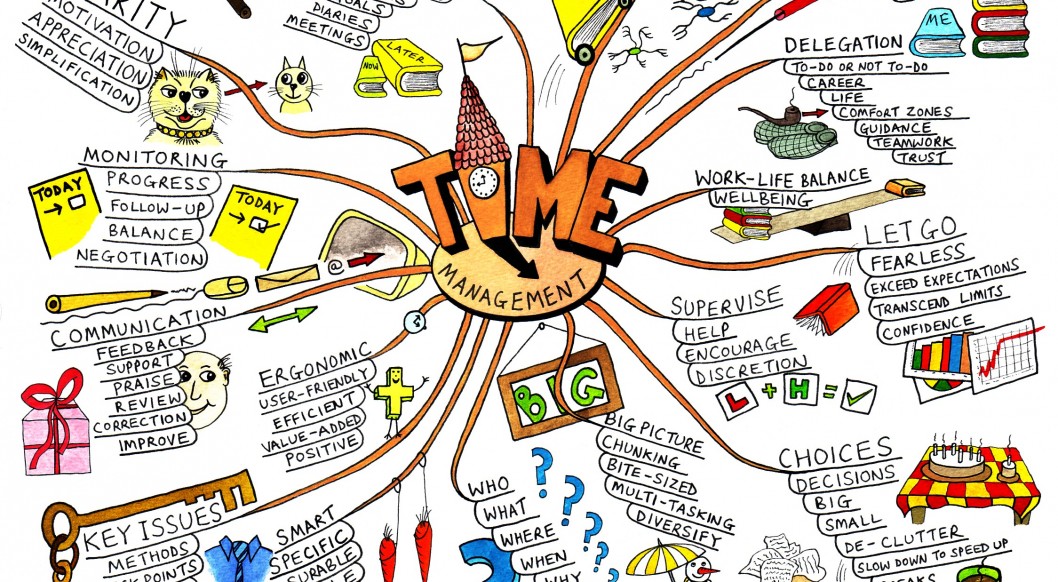 MOTIVATION
APPRECIATION
SIMPLIFICATION
DIARIES
MEETINGS
NOW
LATER
ME
DELEGATION
TO-DO OR NOT TO-DO
CAREER
LIFE
COMFORT ZONES
GUIDANCE
TEAMWORK
TRUST
MONITORING
PROGRESS
FOLLOW-UP
BALANCE
NEGOTIATION
TODAY
TODAY
TIME
MANAGEMENT
WORK-LIFE BALANCE
WELLBEING
LET GO
FEARLESS
EXCEED EXPECTATIONS
TRANSCEND LIMITS
CONFIDENCE
@
COMMUNICATION
FEEDBACK
SUPPORT
PRAISE
REVIEW
CORRECTION
IMPROVE
ERGONOMIC
USER-FRIENDLY
EFFICIENT
VALUE-ADDED
POSITIVE
SUPERVISE
HELP
ENCOURAGE
DISCRETION
L + H =
BIG
BIG PICTURE
CHUNKING
BITE-SIZED
MULTI-TASKING
DIVERSIFY
CHOICES
DECISIONS
BIG
SMALL
DE-CLUTTER
SLOW DOWN TO SPEED UP
KEY ISSUES
METHODS
SMART
SPECIFIC
WHO
WHAT
WHERE
WHEN
WHY
? ? ? ? ? ?